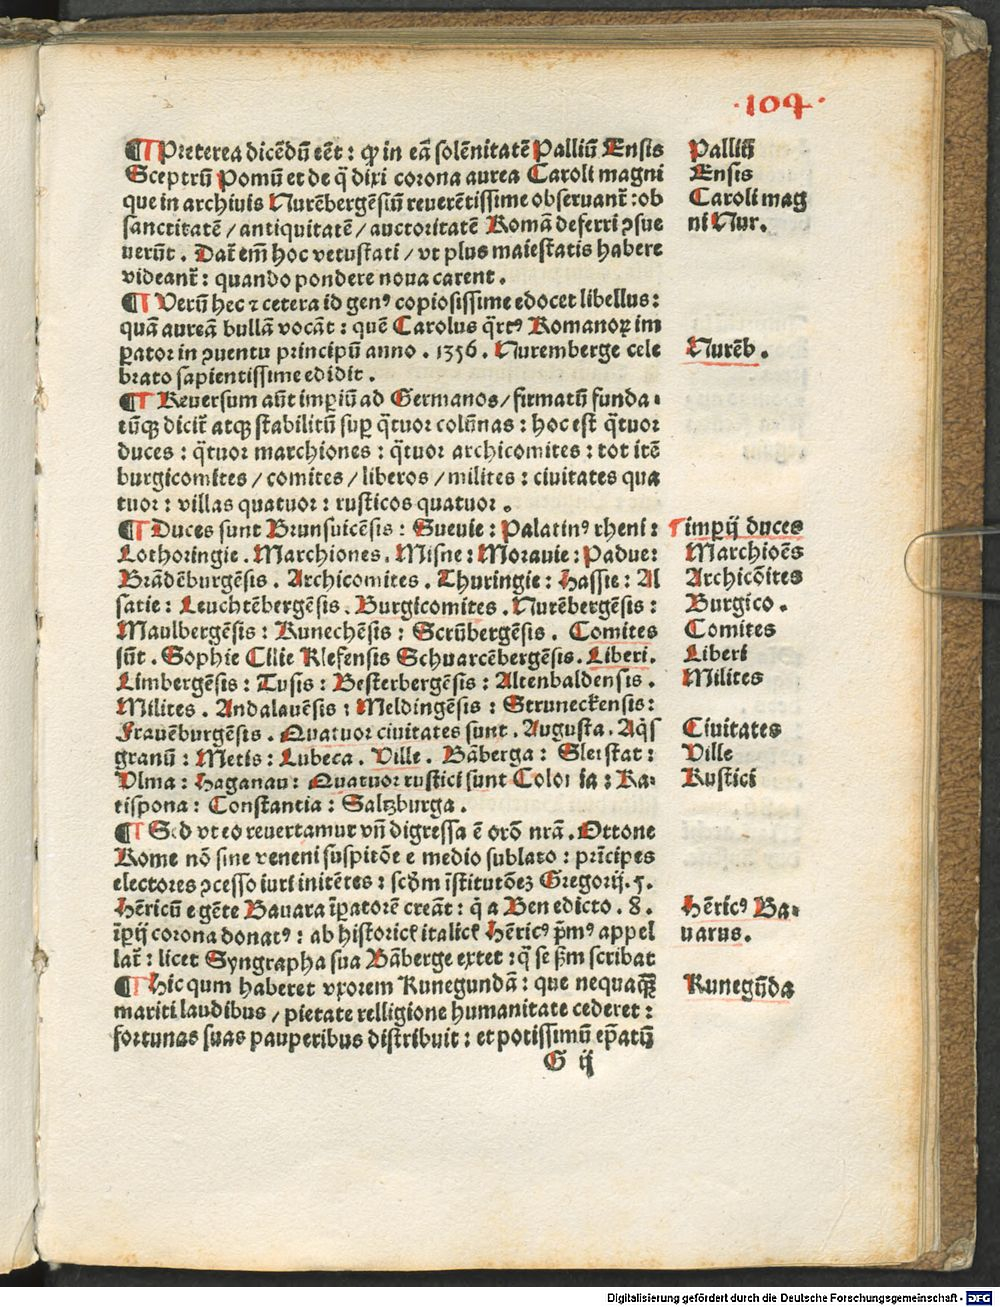 ·104·
¶ Preterea dicēdū eēt: ꝙ in eā solēnitatē Palliū Ensis
Sceptrū Pomū et de q̄ dixi corona aurea Caroli magni
que in archiuis Nurēbergēsiū reuerētissime obseruant̄: ob
sanctitatē / antiquitatē / auctoritatē Romā deferri ꝯsue
uerūt. Dat̄ em̄ hoc vetustati / vt plus maiestatis habere
videant̄: quando pondere noua carent.
¶ Verū hec ⁊ cetera id genꝰ copiosissime edocet libellus:
quā aureā bullā vocāt: quē Carolus q̄rtꝰ Romanoꝝ im
ꝑator in ꝯuentu principū anno. 1356. Nuremberge cele
brato sapientissime edidit.
¶ Reuersum aūt imꝑiū ad Germanos / firmatū funda-
tūqꝫ dicit̄ atqꝫ stabilitū suꝑ q̄tuor colūnas: hoc est q̄tuor
duces: q̄tuor marchiones: q̄tuor archicomites: tot itē
burgicomites / comites / liberos / milites: ciuitates qua
tuor: villas quatuor: rusticos quatuor.
¶ Duces sunt Brunsuicēsis: Sueuie: Palatinꝰ rheni:
Lothoringie. Marchiones. Misne: Morauie: Padue:
Brādēburgēsis. Archicomites. Thuringie: Hassie: Al
satie: Leuchtēbergēsis. Burgicomites. Nurēbergēsis:
Maulbergēsis: Runechēsis: Scrūbergēsis. Comites
sūt. Sophie Cilie Klefensis Schuarcēbergēsis. Liberi.
Limbergēsis: Tusis: Besterbergēsis: Altenbaldensis.
Milites. Andalauēsis: Meldingēsis: Struneckensis:
Frauēburgēsis. Quatuor ciuitates sunt. Augusta. Aq̄s
granū: Metis: Lubeca. Ville. Bāberga: Sletstat:
Vlma: Haganau: Quatuor rustici sunt Coloia: Ra-
tispona: Constantia: Saltzburga.
¶ Sed vt eo reuertamur vn̄ digressa ē orō nrā. Ottone
Rome nō sine veneni suspitōe e medio sublato: prīcipes
electores ꝯcesso iuri initētes: scd̄m īstitutōeꝫ Gregorij. 5.
Hēricū e gēte Bauara īꝑatorē creāt: q̄ a Benedicto. 8.
īꝑij corona donatꝰ: ab historicꝭ italicꝭ Hēricꝰ pͫmꝰ appel
lat̄: licet Syngrapha sua Bāberge extet: q̄ se ẜm scribat
¶ Hic qum haberet vxorem Kunegundā: que nequaꝙ̄
mariti laudibus / pietate relligione humanitate cederet:
fortunas suas pauperibus distribuit: et potissimū ep̄atū
G ij
Palliū
Ensis
Caroli mag
ni Nur.
Nurēb.
imꝑij duces
Marchioēs
Archicōites
Burgico.
Comites
Liberi
Milites
Ciuitates
Ville
Rustici
Hēricꝰ Ba-
uarus.
Kunegūda
Digitalisierung gefördert durch die Deutsche Forschungsgemeinschaft - DFG